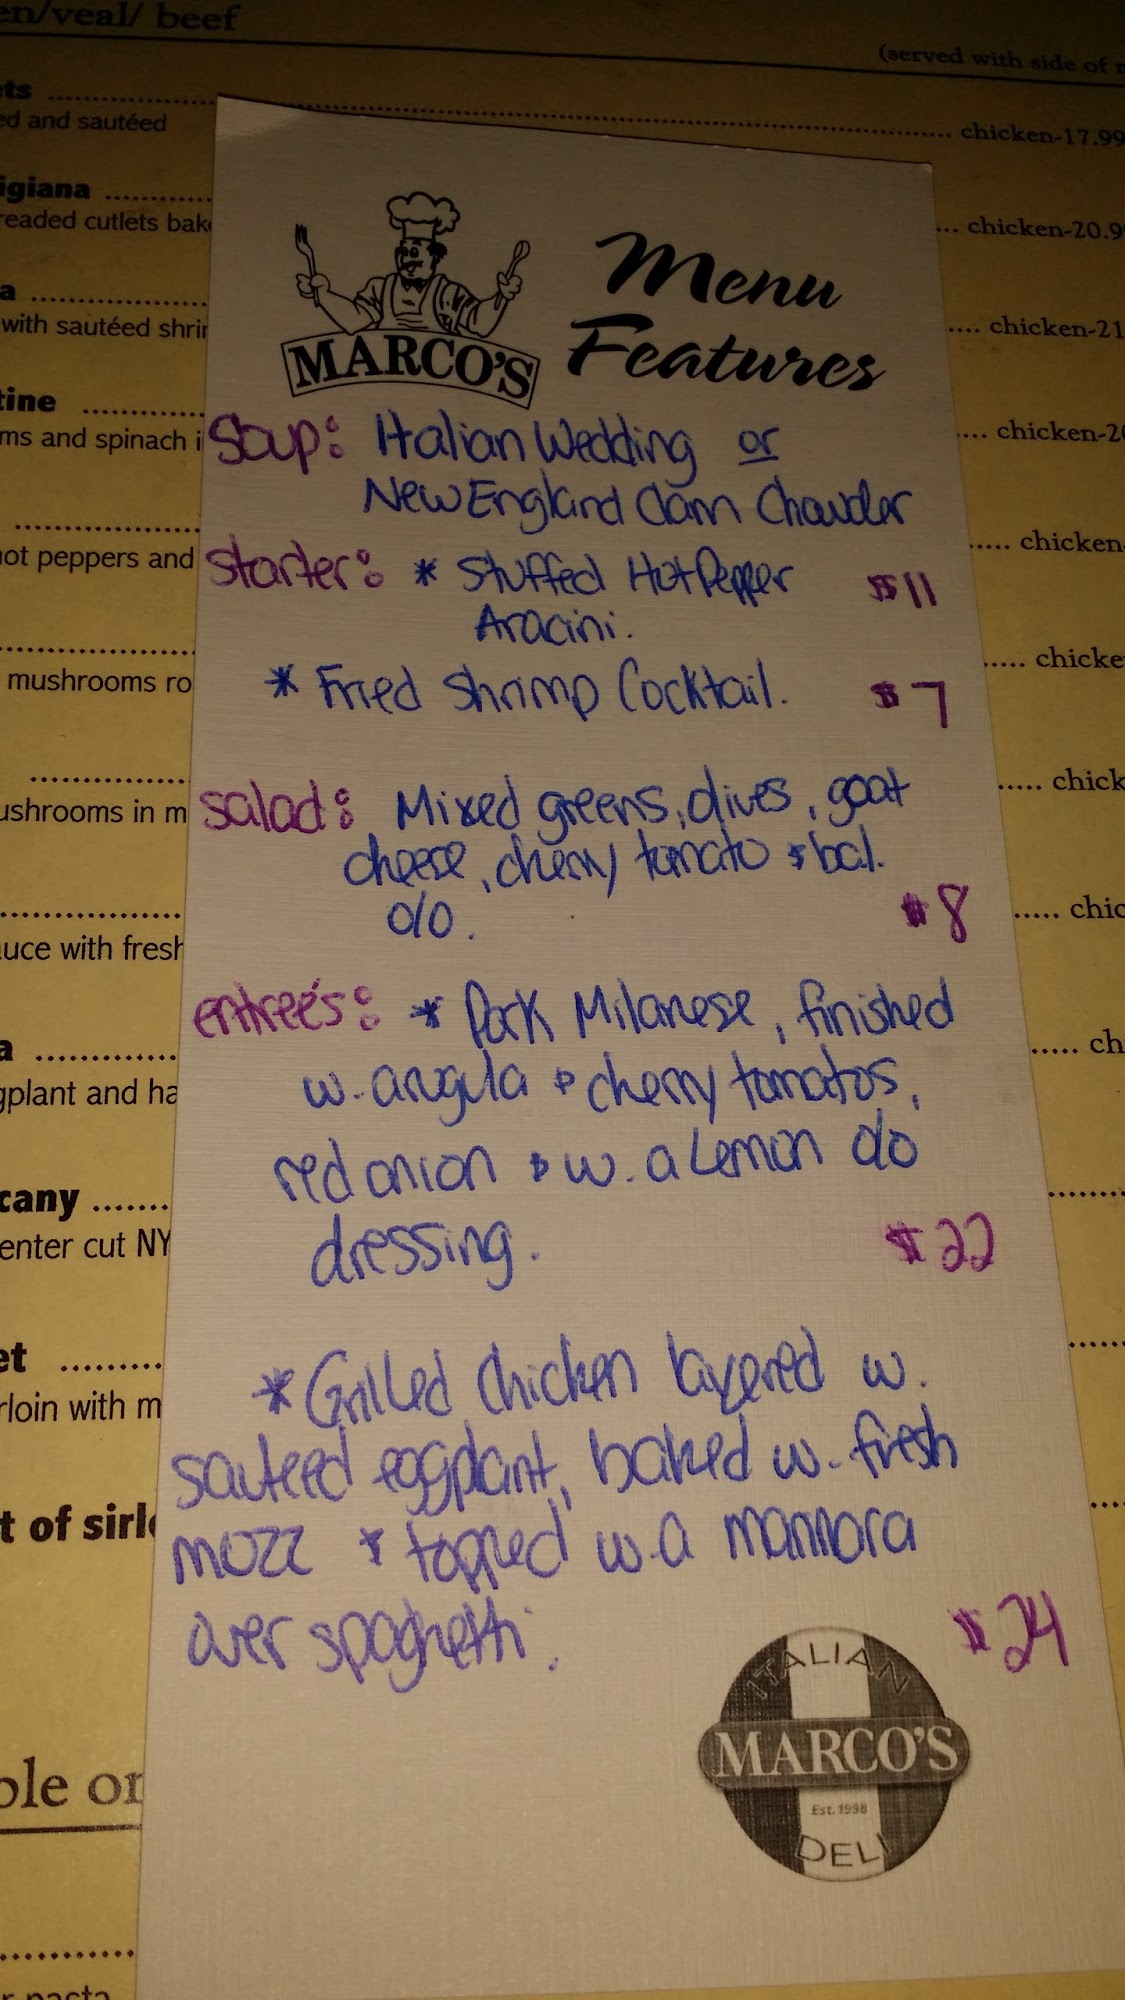 en/veal/ beef
(served with side of
ets
ed and sautéed
chicken-17.99
igiana
readed cutlets bak
chicken-20.9
a
with sautéed shri
chicken-21
tine
ms and spinach i
chicken-2
hot peppers and
chicken-
mushrooms ro
chicke
ushrooms in m
chick
auce with fresh
chic
a
gplant and ha
ch
cany
enter cut NY
et
rloin with m
t of sirl
ble or
r pasta
MARCO'S
Menu
Features
Soup: Italian Wedding or
New England Clam Chowder
Starter: * Stuffed Hot Pepper $11
Aracini.
* Fried Shrimp Cocktail. $7
Salad: Mixed greens, olives, goat
cheese, cherry tomato & bal.
o/o. $8
entreé's: * Pork Milanese, finished
w. arugula & cherry tomatos,
red onion & w. a Lemon o/o
dressing. $22
* Grilled Chicken layered w.
sauteed eggplant, baked w. fresh
mozz & topped w. a marinara
over spaghetti. $24
ITALIAN
MARCO'S
Est. 1998
DELI